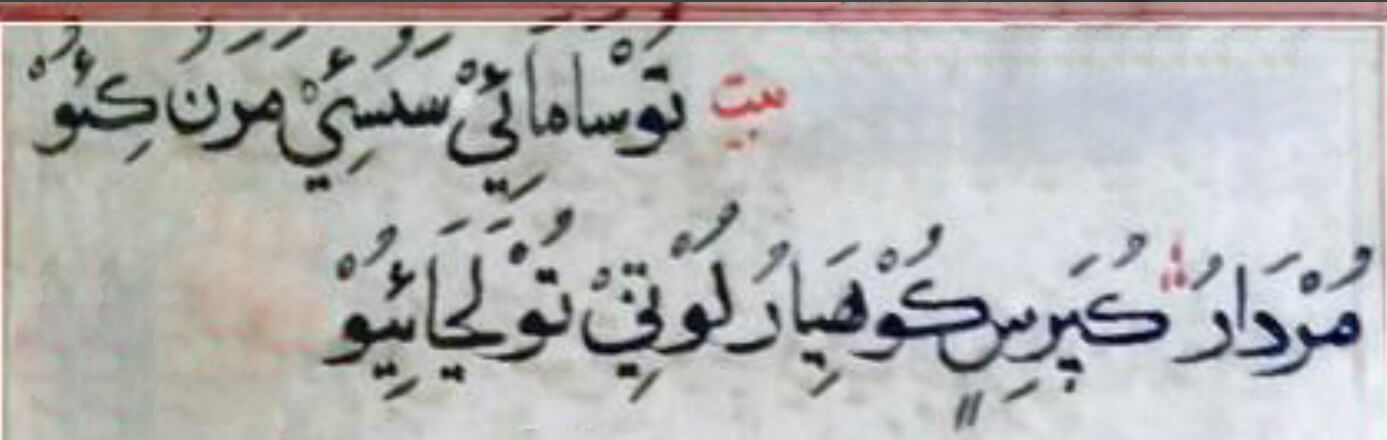 بيت تَوْسامَائِيْ سَسُئِيْ مَرَنُ كِئُوْ
مُرْدَارُ كُپَرِسٍ كُوْهِيَارُ لُوْتِيْ تُوْ لَجَائِيُوْ